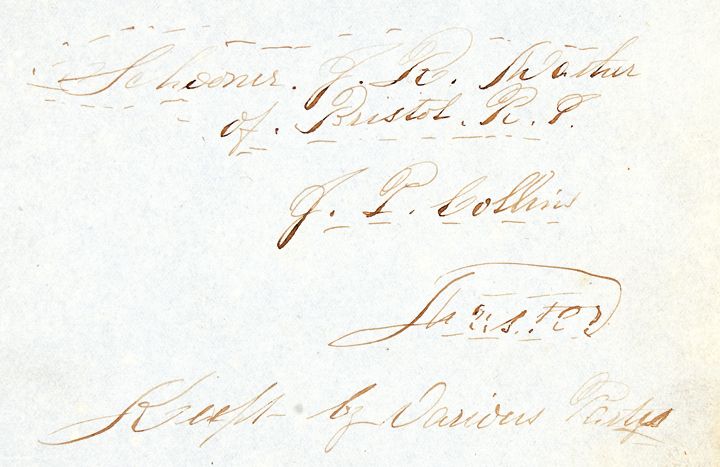 Schooner. J. R. Mather
of. Bristol. R. I.
J. P. Collins
Master
Keept by Various Partys